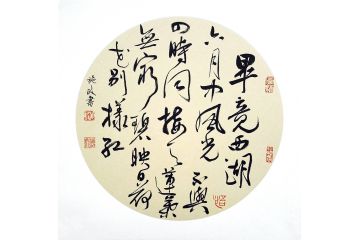 畢竟西湖
六月中風光
不與
四時同接天蓮葉
無窮碧映日荷
花别樣紅